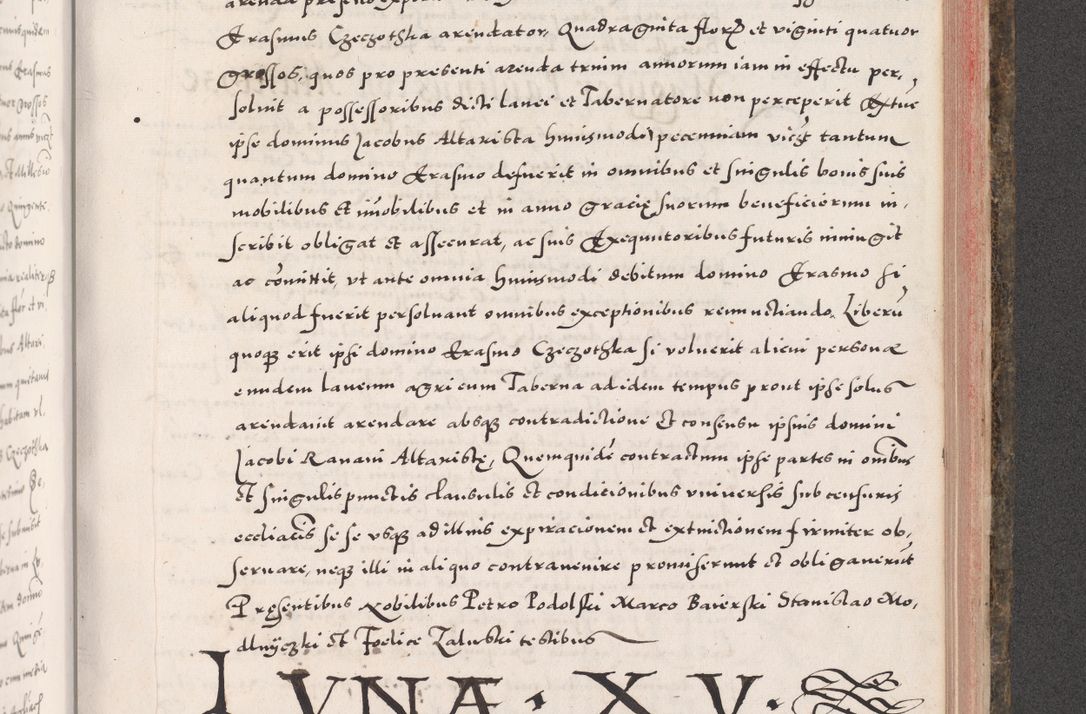 Erasmus Czeczothka arendator, Quadraginta flor. et viginti quatuor
grossos, quos pro presenti arenda trium annorum iam in effectu per,
soluit a possessoribus dicti lanei et Tabernatore non perceperit Extūc
ipse dominus Jacobus Altarista huiusmodi pecuniam vicz tantum
quantum domino Erasmo defuerit in omnibus et singulis bonis suis
mobilibus et im̄obilibus et in anno gracię suorum beneficiorum in,
scribit obligat et assecurat, ac suis Exequutoribus futuris iniungit
ac com̄ittit, vt ante omnia huiusmodi debitum domino Erasmo si
aliquod fuerit persoluant omnibus exceptionibus renunctiando. Liberū
quoqȝ erit ipsi domino Erasmo Czeczothka si voluerit alicui personæ
eundem laneum agri cum Taberna ad idem tempus prout ipse solus
arendauit arendare absqȝ contradictione et consensu ipsius domini
Jacobi Ranani Altaristę, Quemquidē contractum ipse partes in om̄ibus
et singulis punctis clausulis et condicionibus vniuersis sub censuris
eccliacis se se vsqȝ ad illius expiracionem et extinctionem firmiter ob,
seruare, neqȝ illi in aliquo contrauenire promiserunt et obligauerūt
Pręsentibus Nobilibus Petro Podolski Marco Baierski Stanislao Mo,
dlniyczki et Foelice Zaluski testibus
LVNÆ · XV ·